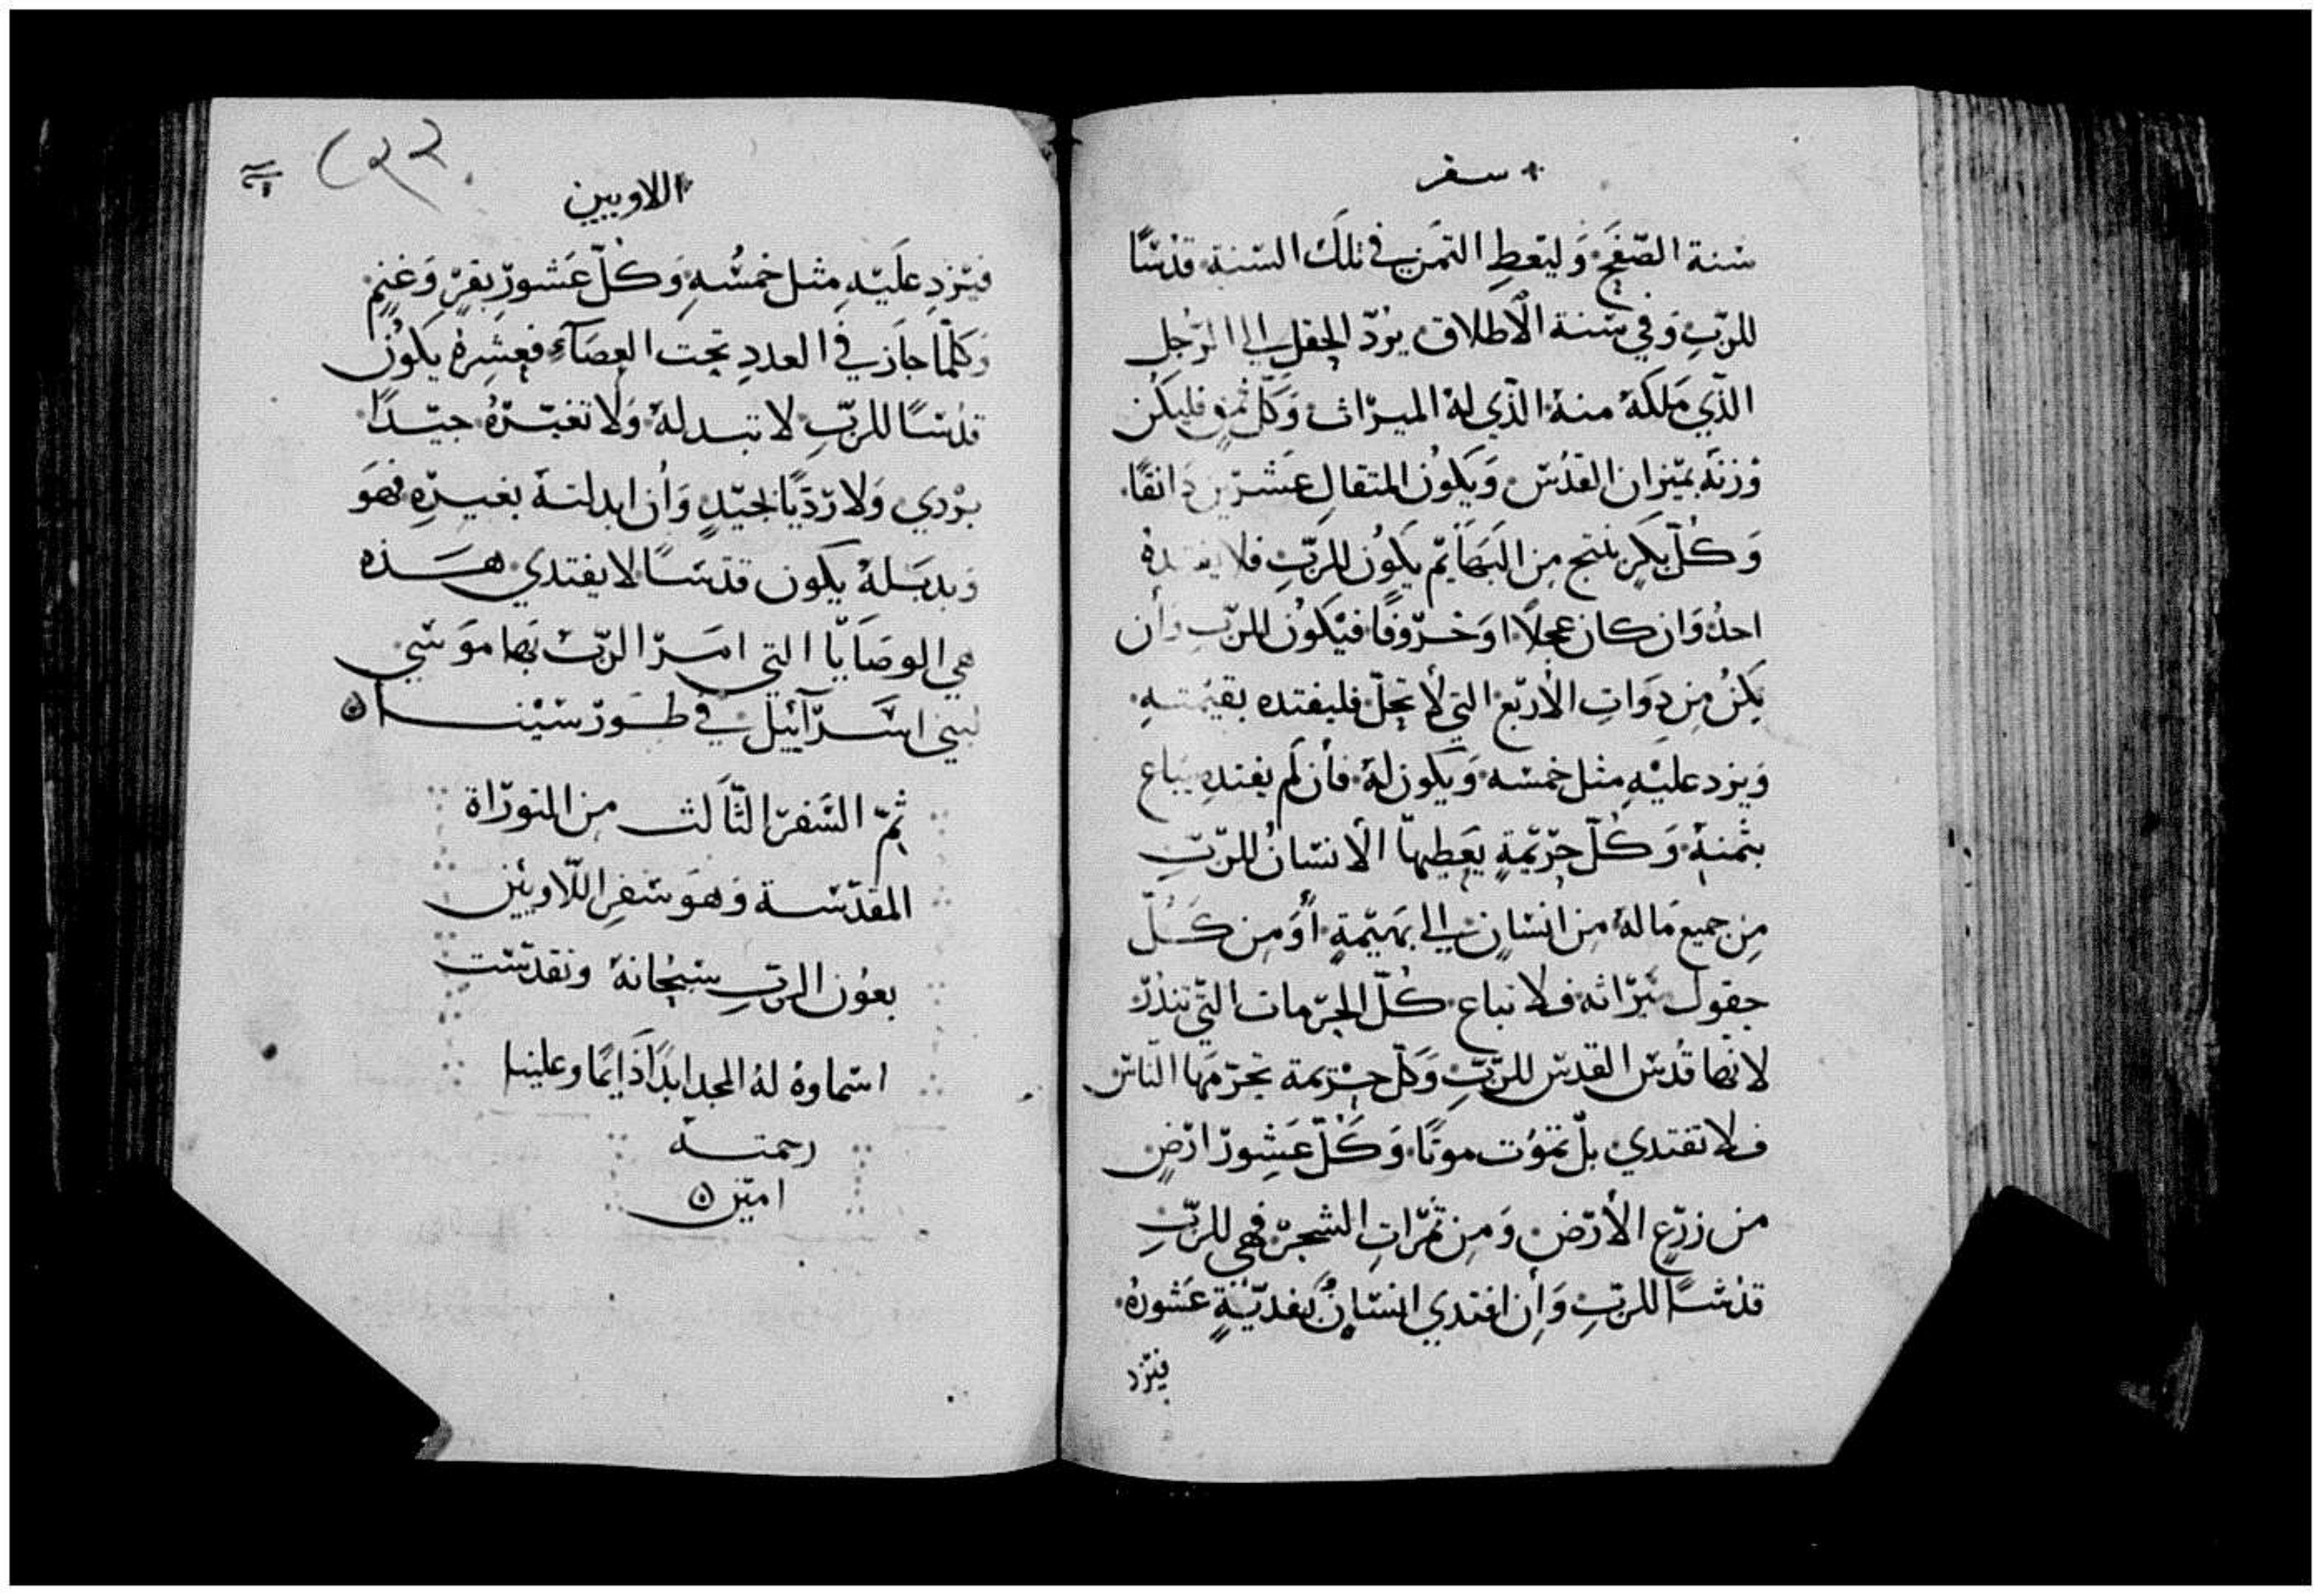 سفر
سَنة الصَّفحِ وَليَعطِ الثمَن في تلكَ السَّنة قدسًا
للرّبِ وَفي سَنة الأطلاق يرُدّ الحقل الى الرّجل
الذّي مَلكهُ منهُ الذّي لهُ الميراث وَكلّ ثمنٍ فليكن
وزنهُ بميزان القدُس وَيكوُن المثقال عَشرين دَانقًا
وَكُلّ بكرٍ ينتج مِن البَهَائم يكوُن للرّبِ فلا يفتدهُ
احدُ وَان كان عجلًا اوَ خرُوفًا فيَكوُن للرّبِ وَأن
يكنُ مِن ذوَاتِ الأربَع التي لا تحِلّ فليفتده بقيمتهِ
وَيزد عليْهِ مثل خمسه وَيكون لهُ فأن لم يفتدهِ يبَاع
بثمنهِ وَكُلّ حرّيمَةٍ يَعطِيهَا الأنسَانُ للرّبِ
مِن جميع مَا لهُ مِن انسَانٍ الى بَهيمَةٍ أوَ مِن كَلّ
حقول ميرَاثه فلا تباع كُلّ الحرّمات التّي تنذرّ
لانهّا قدُس القدس للرّبِ وَكلّ حرّيمة تحرّمَها النّاس
فلا تفتدي بلْ تموُت موتًا وَكُلّ عَشِورّ ارْضٍ
من زرّعِ الأرّض وَمِن ثمرّاتِ الشجرّ فهي للرّبِ
قدسًا للرّبِ وَأِن افتدي انسَانٌ بفديّةٍ عَشورهُ
فيزد
٢٢٢
اللاويين
فيَزدِ علَيْهِ مثل خمسُهِ وَكُلّ عَشورّ بقرٍ وَغنمٍ
وَكلّما جَازَ في العددِ تحت العصَاءِ فعِشِرهُ يكوُن
قدُسًا للرّبِ لا تبدلهُ وَلا تغيّرهُ جيّدًا
برْدي وَلا رَدّيًا بجيّدٍ وَأن ابدلتهُ بغيرّهِ فهوَ
وَبدَلهُ يكون قدسًا لا يفتدي هَذه
هي الوصَايَا التي امَرّ الرّبْ بهَا موَسي
لبني اسَرآئيل في طورّ سَينا ه
تمّ السّفرّ الثّالث مِن التورّاة
المقدّسة وَهوَ سَفرِ اللّاويين
بعوُن الرّبِ سبحانهُ وتقدسّت
اسماوهُ لهُ المجد ابدَاً دَايمًا وعلينا
رحمتهُ
امين ه